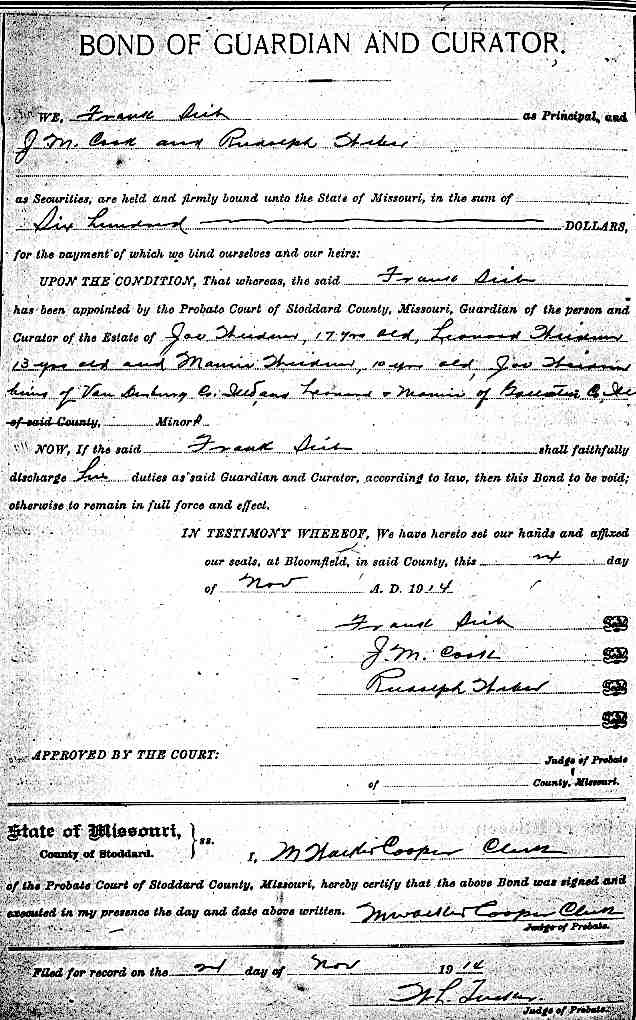 BOND OF GUARDIAN AND CURATOR.
WE, Frank as Principal, and
J M. Cook and Rudolph
as Securities, are held and firmly bound unto the State of Missouri, in the sum of
Six hundred DOLLARS,
for the payment of which we bind ourselves and our heirs:
UPON THE CONDITION, That whereas, the said Frank
has been appointed by the Probate Court of Stoddard County, Missouri, Guardian of the person and
Curator of the Estate of Joe 17 yrs old, Leonard
13 yrs old and Mamie 10 yrs old, Joe
of Co. and Leonard & Mamie of Co,
of said County, Minor
NOW, If the said Frank shall faithfully
discharge his duties as said Guardian and Curator, according to law, then this Bond to be void;
otherwise to remain in full force and effect.
IN TESTIMONY WHEREOF, We have hereto set our hands and affixed
our seals, at Bloomfield, in said County, this day
of Nov A. D. 1914
Frank
J. M. Cook
Rudolph
APPROVED BY THE COURT:
Judge of Probate
of County, Missouri.
State of Missouri,
County of Stoddard. } ss.
I, Cooper Clerk
of the Probate Court of Stoddard County, Missouri, hereby certify that the above Bond was signed and
executed in my presence the day and date above written. Cooper Clerk
Judge of Probate.
Filed for record on the day of Nov 1914
Judge of Probate